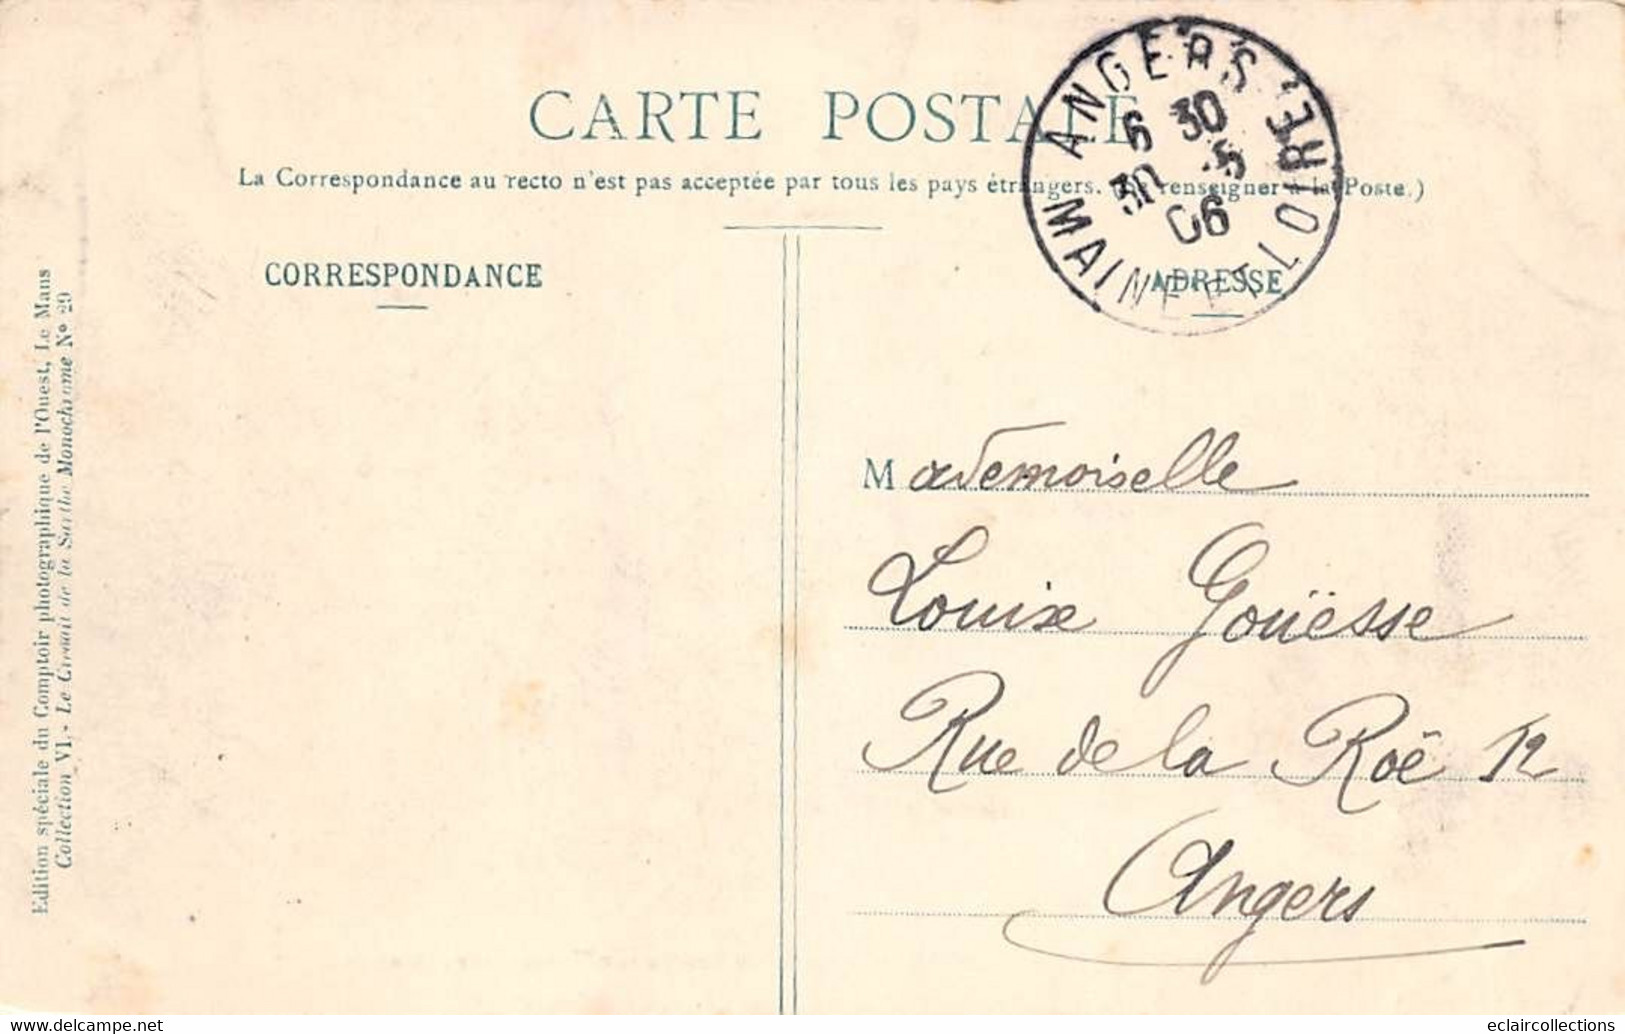 CARTE POSTALE
La Correspondance au recto n'est pas acceptée par tous les pays étrangers. (Se renseigner à la Poste.)
ANGERS
6 30
30 -5
06
MAINE ET LOIRE
CORRESPONDANCE
ADRESSE
Mademoiselle
Louise Gouësse
Rue de la Roë 12
Angers
Edition spéciale du Comptoir photographique de l'Ouest, Le Mans
Collection VI.- Le Circuit de la Sarthe Monochrome N° 29
eclaircollections